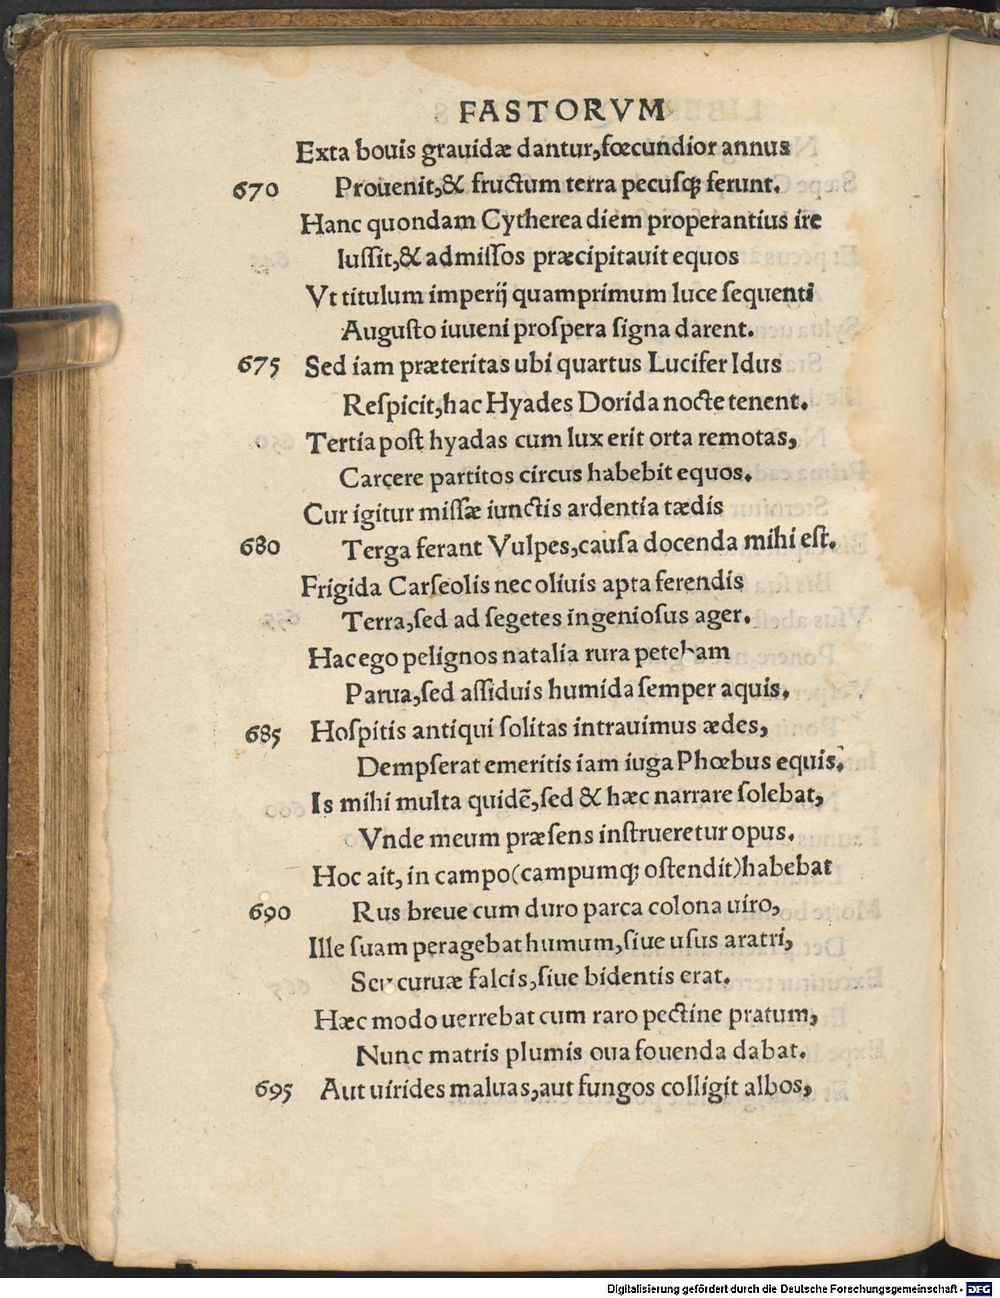 FASTORVM
Exta bouis grauidæ dantur,fœcundior annus
670 Prouenit,& fructum terra pecusq; ferunt.
Hanc quondam Cytherea diem properantius ire
Iuſſit,& admiſſos præcipitauit equos
Vt titulum imperij quamprimum luce ſequenti
Auguſto iuueni proſpera ſigna darent.
675 Sed iam præteritas ubi quartus Lucifer Idus
Reſpicit,hac Hyades Dorida nocte tenent.
Tertia poſt hyadas cum lux erit orta remotas,
Carcere partitos circus habebit equos.
Cur igitur miſſæ iunctis ardentia tædis
680 Terga ferant Vulpes,cauſa docenda mihi eſt.
Frigida Carſeolis nec oliuis apta ferendis
Terra,ſed ad ſegetes ingenioſus ager.
Hac ego pelignos natalia rura petebam
Parua,ſed aſſiduis humida ſemper aquis.
685 Hoſpitis antiqui ſolitas intrauimus ædes,
Dempſerat emeritis iam iuga Phœbus equis.
Is mihi multa quidē,ſed & hæc narrare ſolebat,
Vnde meum præſens inſtrueretur opus.
Hoc ait, in campo(campumq; oſtendit)habebat
690 Rus breue cum duro parca colona uiro,
Ille ſuam peragebat humum,ſiue uſus aratri,
Seu curuæ falcis,ſiue bidentis erat.
Hæc modo uerrebat cum raro pectine pratum,
Nunc matris plumis oua fouenda dabat.
695 Aut uirides maluas,aut fungos colligit albos,
Digitalisierung gefördert durch die Deutsche Forschungsgemeinschaft - DFG